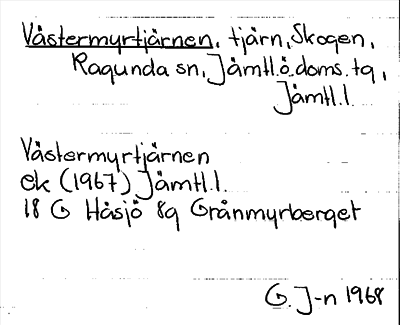 Västermyrtjärnen, tjärn, Skogen,
Ragunda sn, Jämtl.ö.doms.tg,
Jämtl.l.
Västermyrtjärnen
ek (1967) Jämtl.l.
18 G Håsjö 8g Grånmyrberget
G. J-n 1968